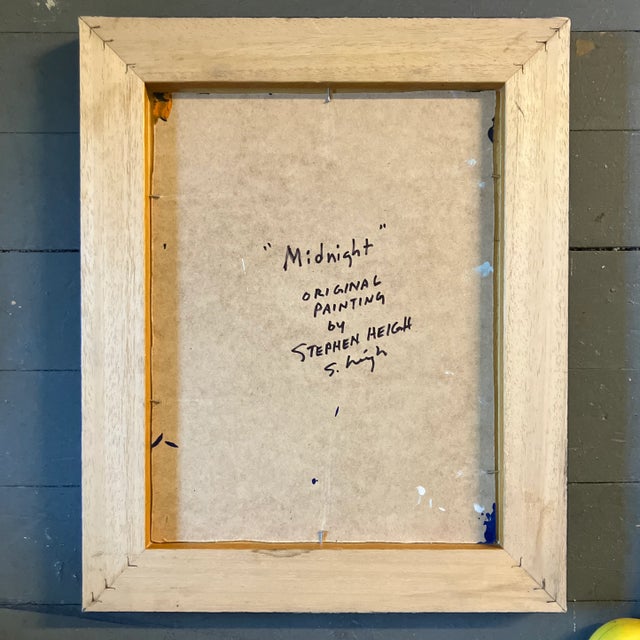 "Midnight"
ORIGINAL
PAINTING
by
STEPHEN HEIGH
S. Heigh